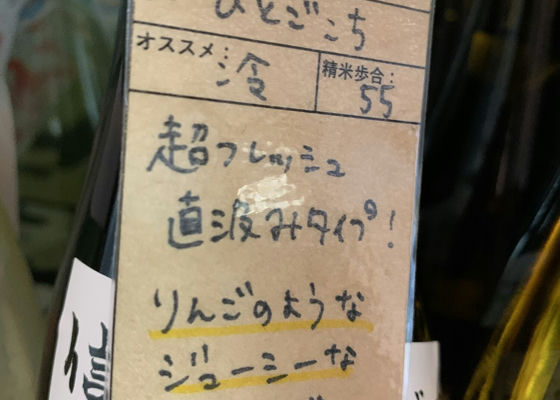 ひとごこち
オススメ: 冷 精米歩合: 55
超フレッシュ
直汲みタイプ!
りんごのような
ジューシーな